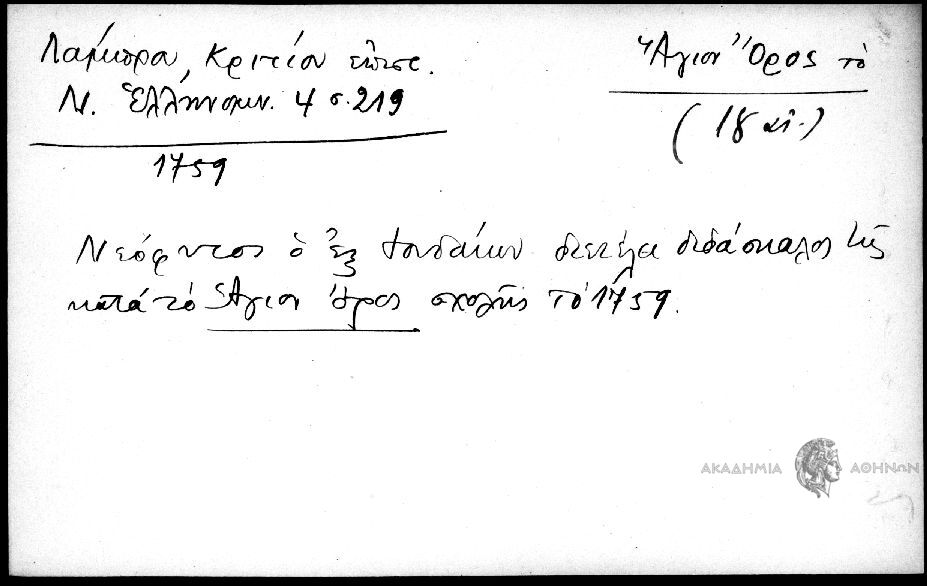 Λάμπρου, Κριτίου ἐπισ.
Ν. Ἑλληνομν. 4 σ. 219
1759
Ἅγιον Ὄρος τὸ
(18 αἰ.)
Νεόφυτος ὁ ἐξ Ἰουδαίων διετέλει διδάσκαλος τῆς
κατὰ τὸ Ἅγιον Ὄρος σχολῆς τὸ 1759.
ΑΚΑΔΗΜΙΑ ΑΘΗΝΩΝ